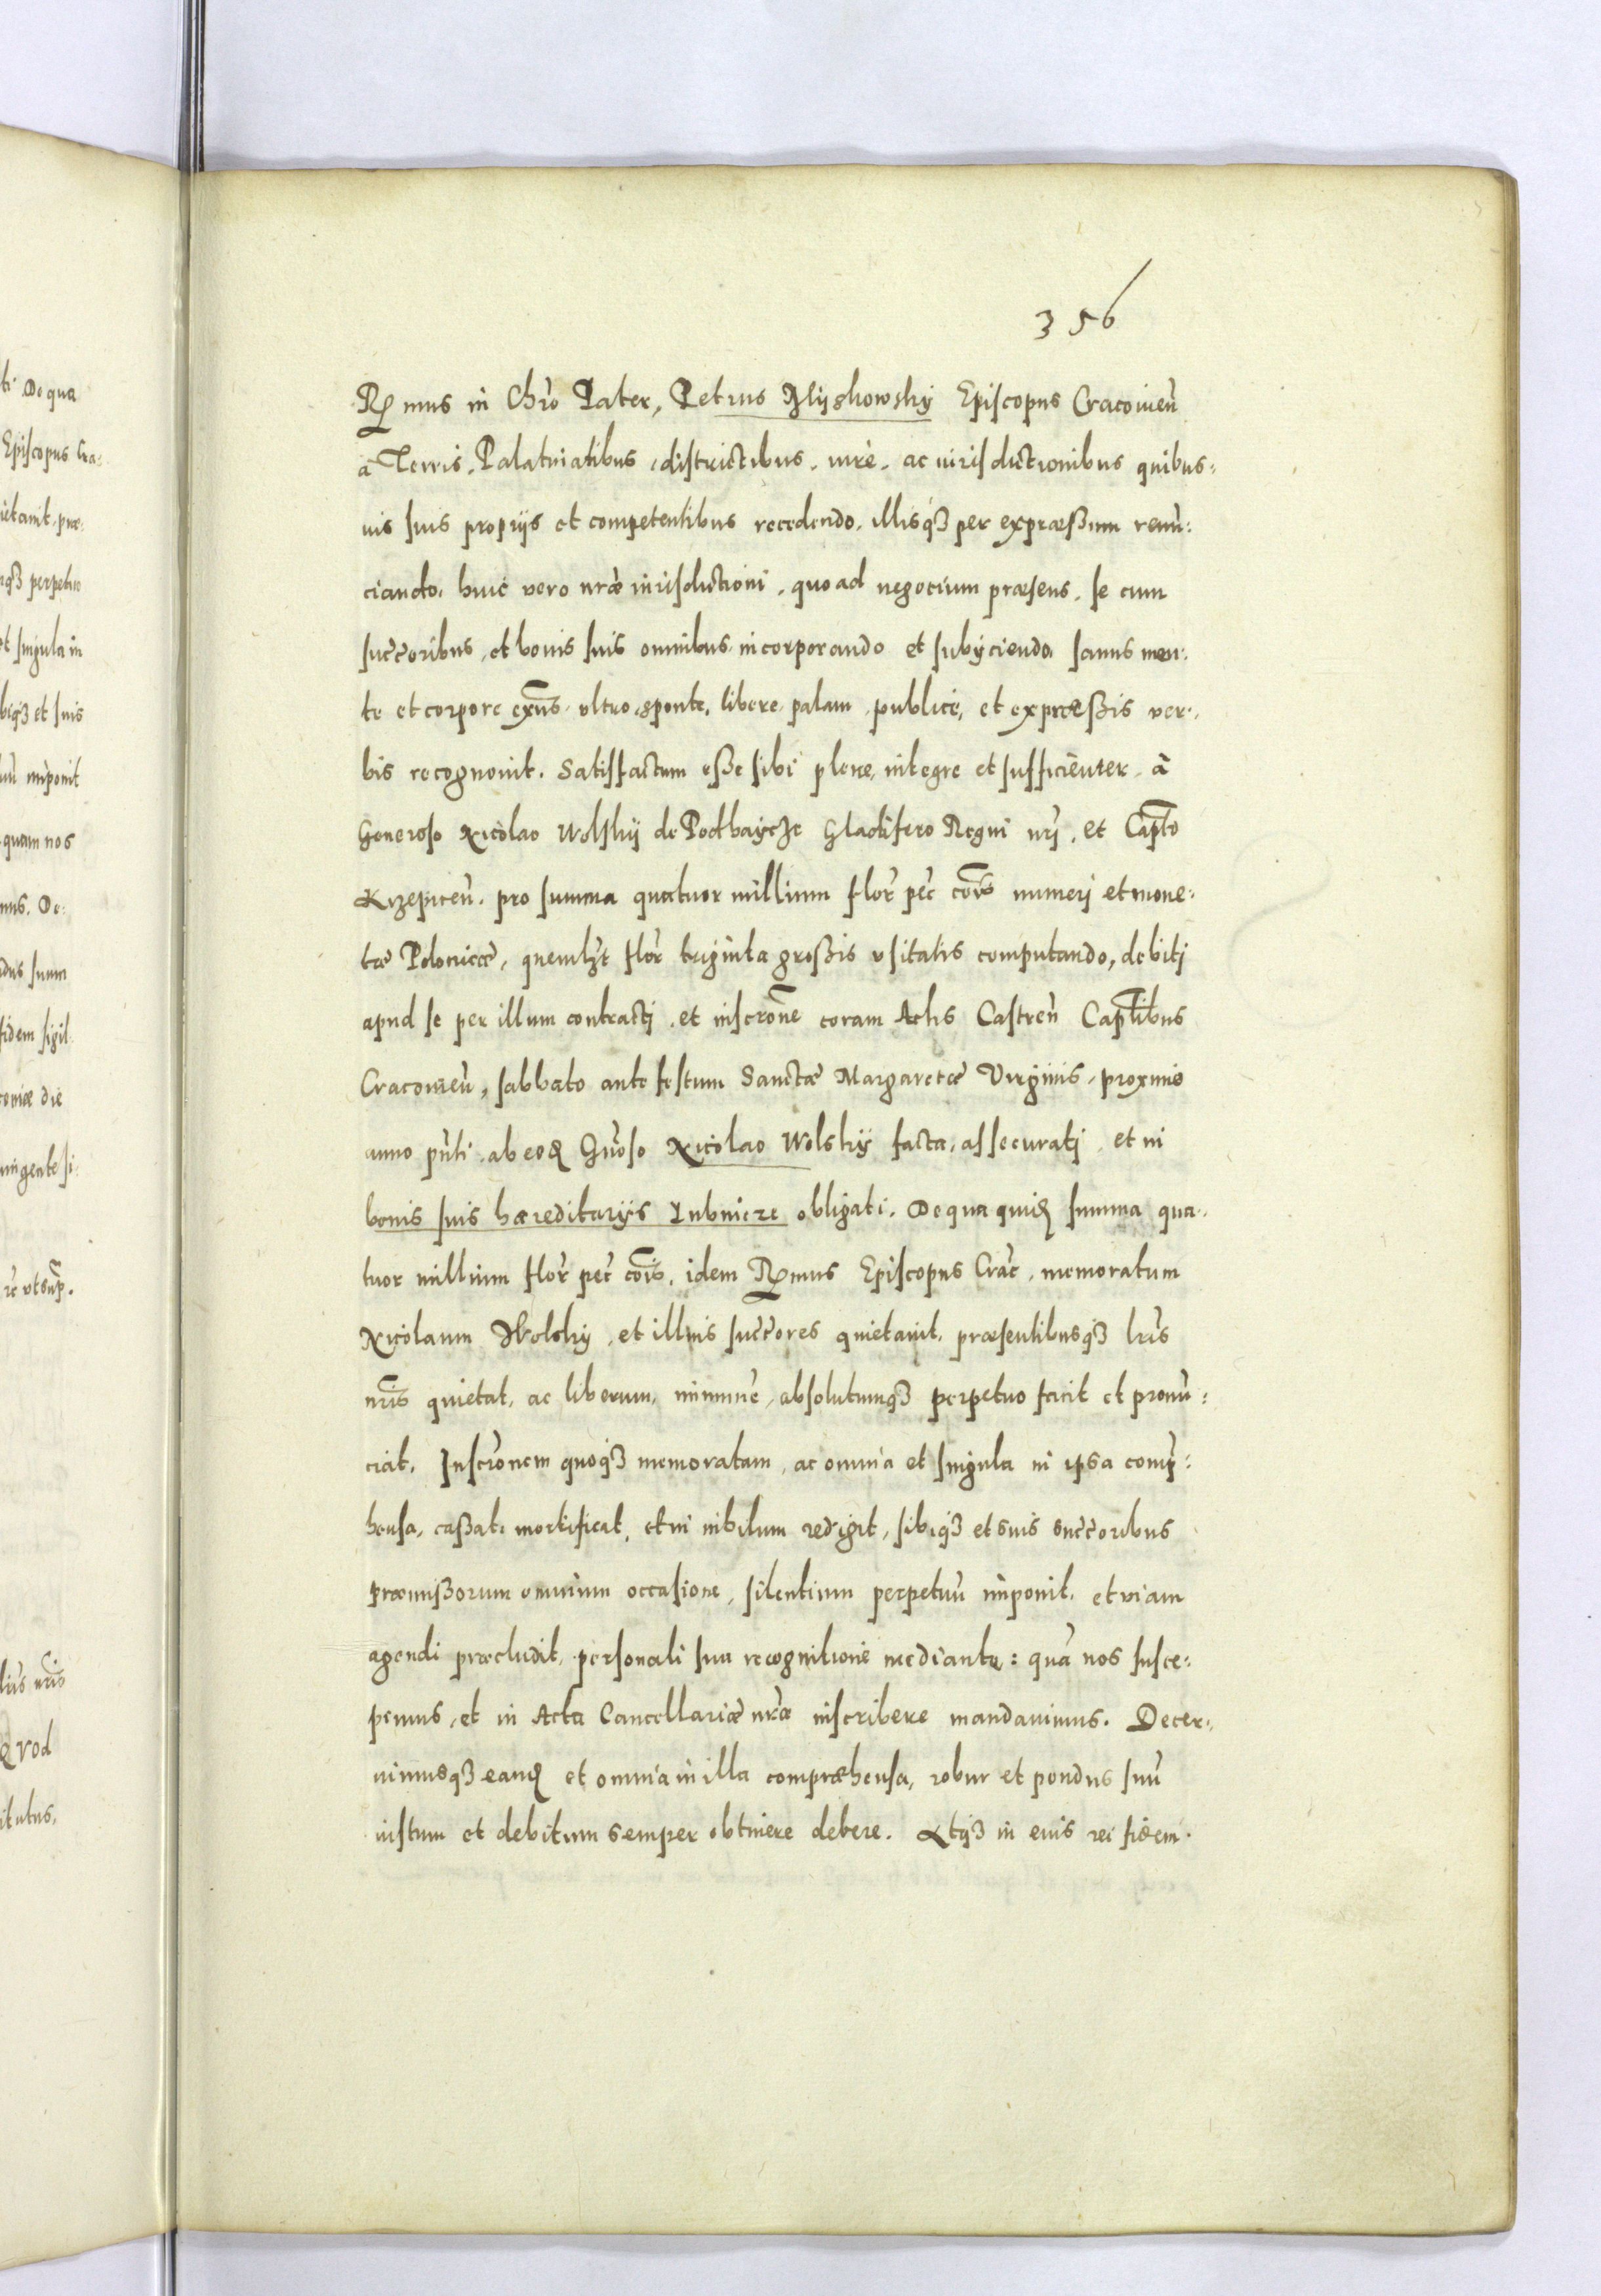 356
Rmus in Chro Pater, Petrus Myszkowsky Episcopus Cracovien̄
a Terris, Palatinatibus, districtibus, iure, ac iurisdictionibus quibus:
uis suis proprijs et competentibus recedendo, illisq3 per expræssum renu͂:
ciando, huic vero nr̄æ iurisdictioni, quo ad negocium præsens, se cum
succ̄oribus, et bonis suis omnibus incorporando et subijciendo, sanus men:
te et corpore exn̄s, vltro, sponte, libere, palam, publice, et expræssis ver:
bis recognouit. Satisfactum esse sibi plene, integre et sufficienter, à
Generoso Nicolao Wolsky de Podhaycze Gladifero Regni nr̄j, et Capt̄o
Krzepicen̄. pro summa quatuor millium flor̄ pec̄ cōis numerj et mone:
tæ Polonicæ, quemlꝫt flor̄ triginta grossis vsitatis computando, debitj
apud se per illum contractj, et inscr̄one coram Actis Castren̄ Capt̄libus
Cracouien̄, sabbato ante festum Sanctæ Margaretæ Virginis, proximo
anno pn̄ti, ab eod̄ Gn̄oso Nicolao Wolsky facta, assecuratj, et in
bonis suis hæreditarijs Lubnicze obligati. De qua quid̄ summa qua:
tuor millium flor̄ pec̄ cōis, idem Rmus Episcopus Crac̄, memoratum
Nicolaum Wolsky, et illius succ̄ores quietauit, præsentibusq3 lr̄is
nr̄is quietat, ac liberum, immune͂, absolutumq3 perpetuo facit et pronu͂:
ciat. Inscr̄onem quoq3 memoratam, ac omnia et singula in ipsa comp̄:
hensa, cassat, mortificat, et in nihilum redigit, sibiq3 et suis succ̄oribus
præmissorum omnium occasione, silentium perpetuu͂ imponit, et viam
agendi præcludit, personali sua recognitione mediante: qua͂ nos susce:
pimus, et in Acta Cancellariæ nr̄æ inscribere mandauimus. Decer:
nimusq3 eand̄ et omnia in illa compræhensa, robur et pondus suu͂
iustum et debitum semper obtinere debere. Atq3 in eius rei fidem